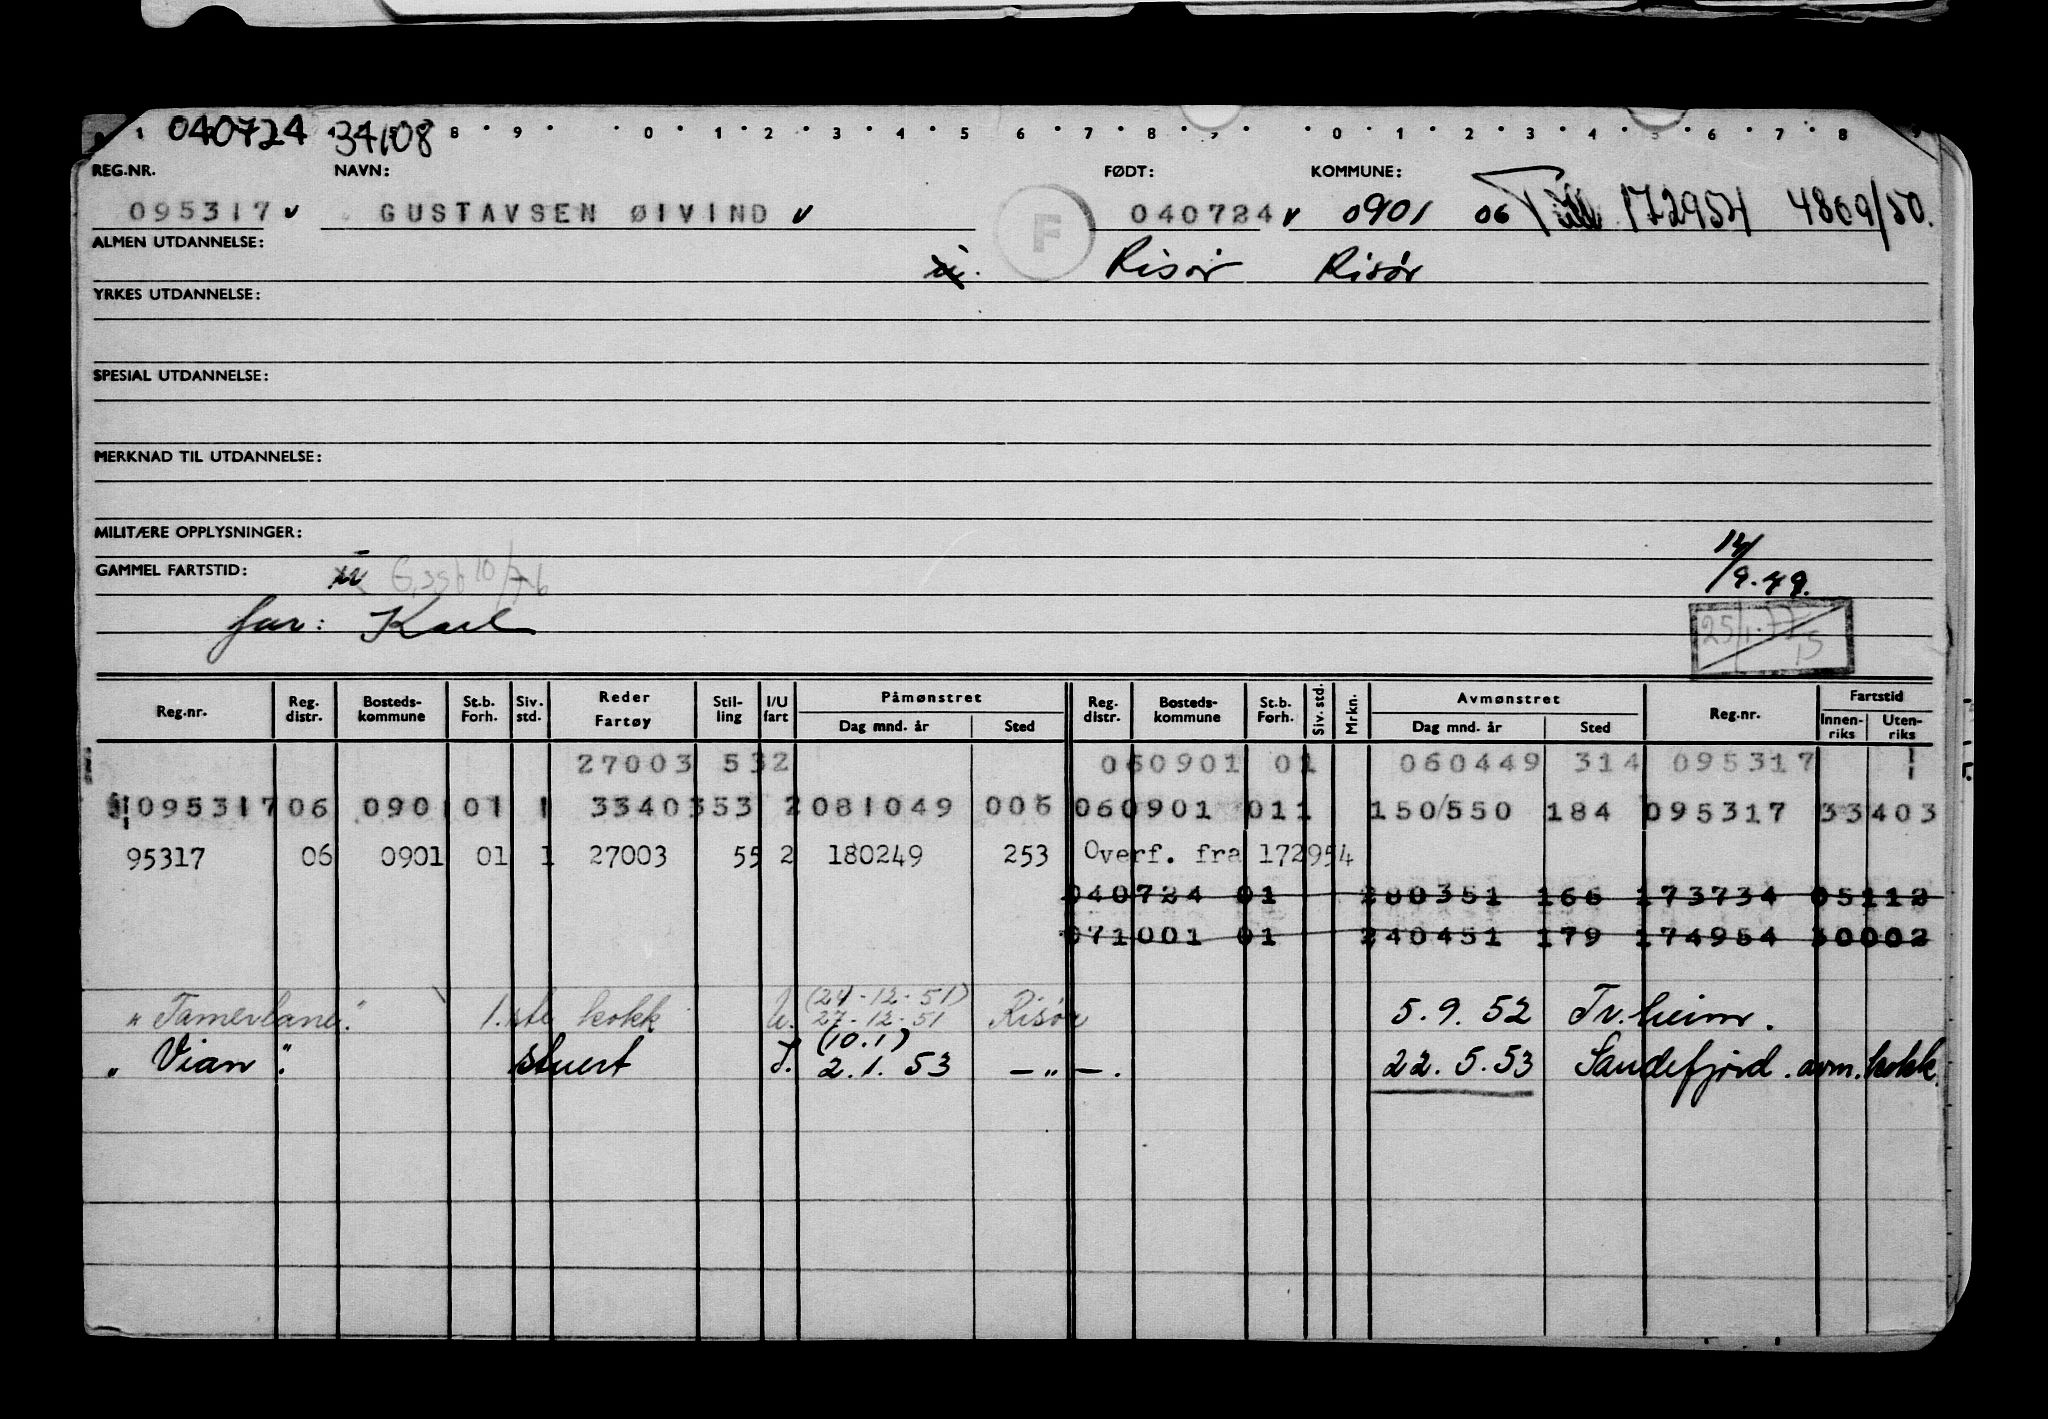 040724 34108
8 9 0 1 2 3 4 5 6 7 8 9 0 1 2 3 4 5 6 7 8
REG.NR. NAVN: FØDT: KOMMUNE:
095317 v GUSTAVSEN ØIVIND v F 040724 v 0901 06 Till 172954 4869/50.
ALMEN UTDANNELSE: Risør Risør
YRKES UTDANNELSE:
SPESIAL UTDANNELSE:
MERKNAD TIL UTDANNELSE:
MILITÆRE OPPLYSNINGER:
GAMMEL FARTSTID:
far: Karl
Reg.nr. Reg. distr. Bosteds-kommune St.b. Forh. Siv. std. Reder Fartøy Stil-ling I/U fart Påmønstret Dag mnd. år Sted Reg. distr. Bosteds-kommune St.b. Forh. Siv. std. Mrkn. Avmønstret Dag mnd. år Sted Reg.nr. Fartstid Innen-riks Uten-riks
27003 532 060901 01 060449 314 095317
095317 06 0901 01 1 33403 53 2 081049 006 060901 011 150550 184 095317 33403
95317 06 0901 01 1 27003 55 2 180249 253 Overf. fra 172954
040724 01 280351 166 173734 05112
071001 01 240451 179 174954 30002
"Tamerlane" 1.ste kokk U. (24-12-51) 27-12-51 Risør 5.9.52 Tr.heim.
"Vian" stuert (10.1) 2.1.53 -"-. 22.5.53 Sandefjord. avm. kokk.